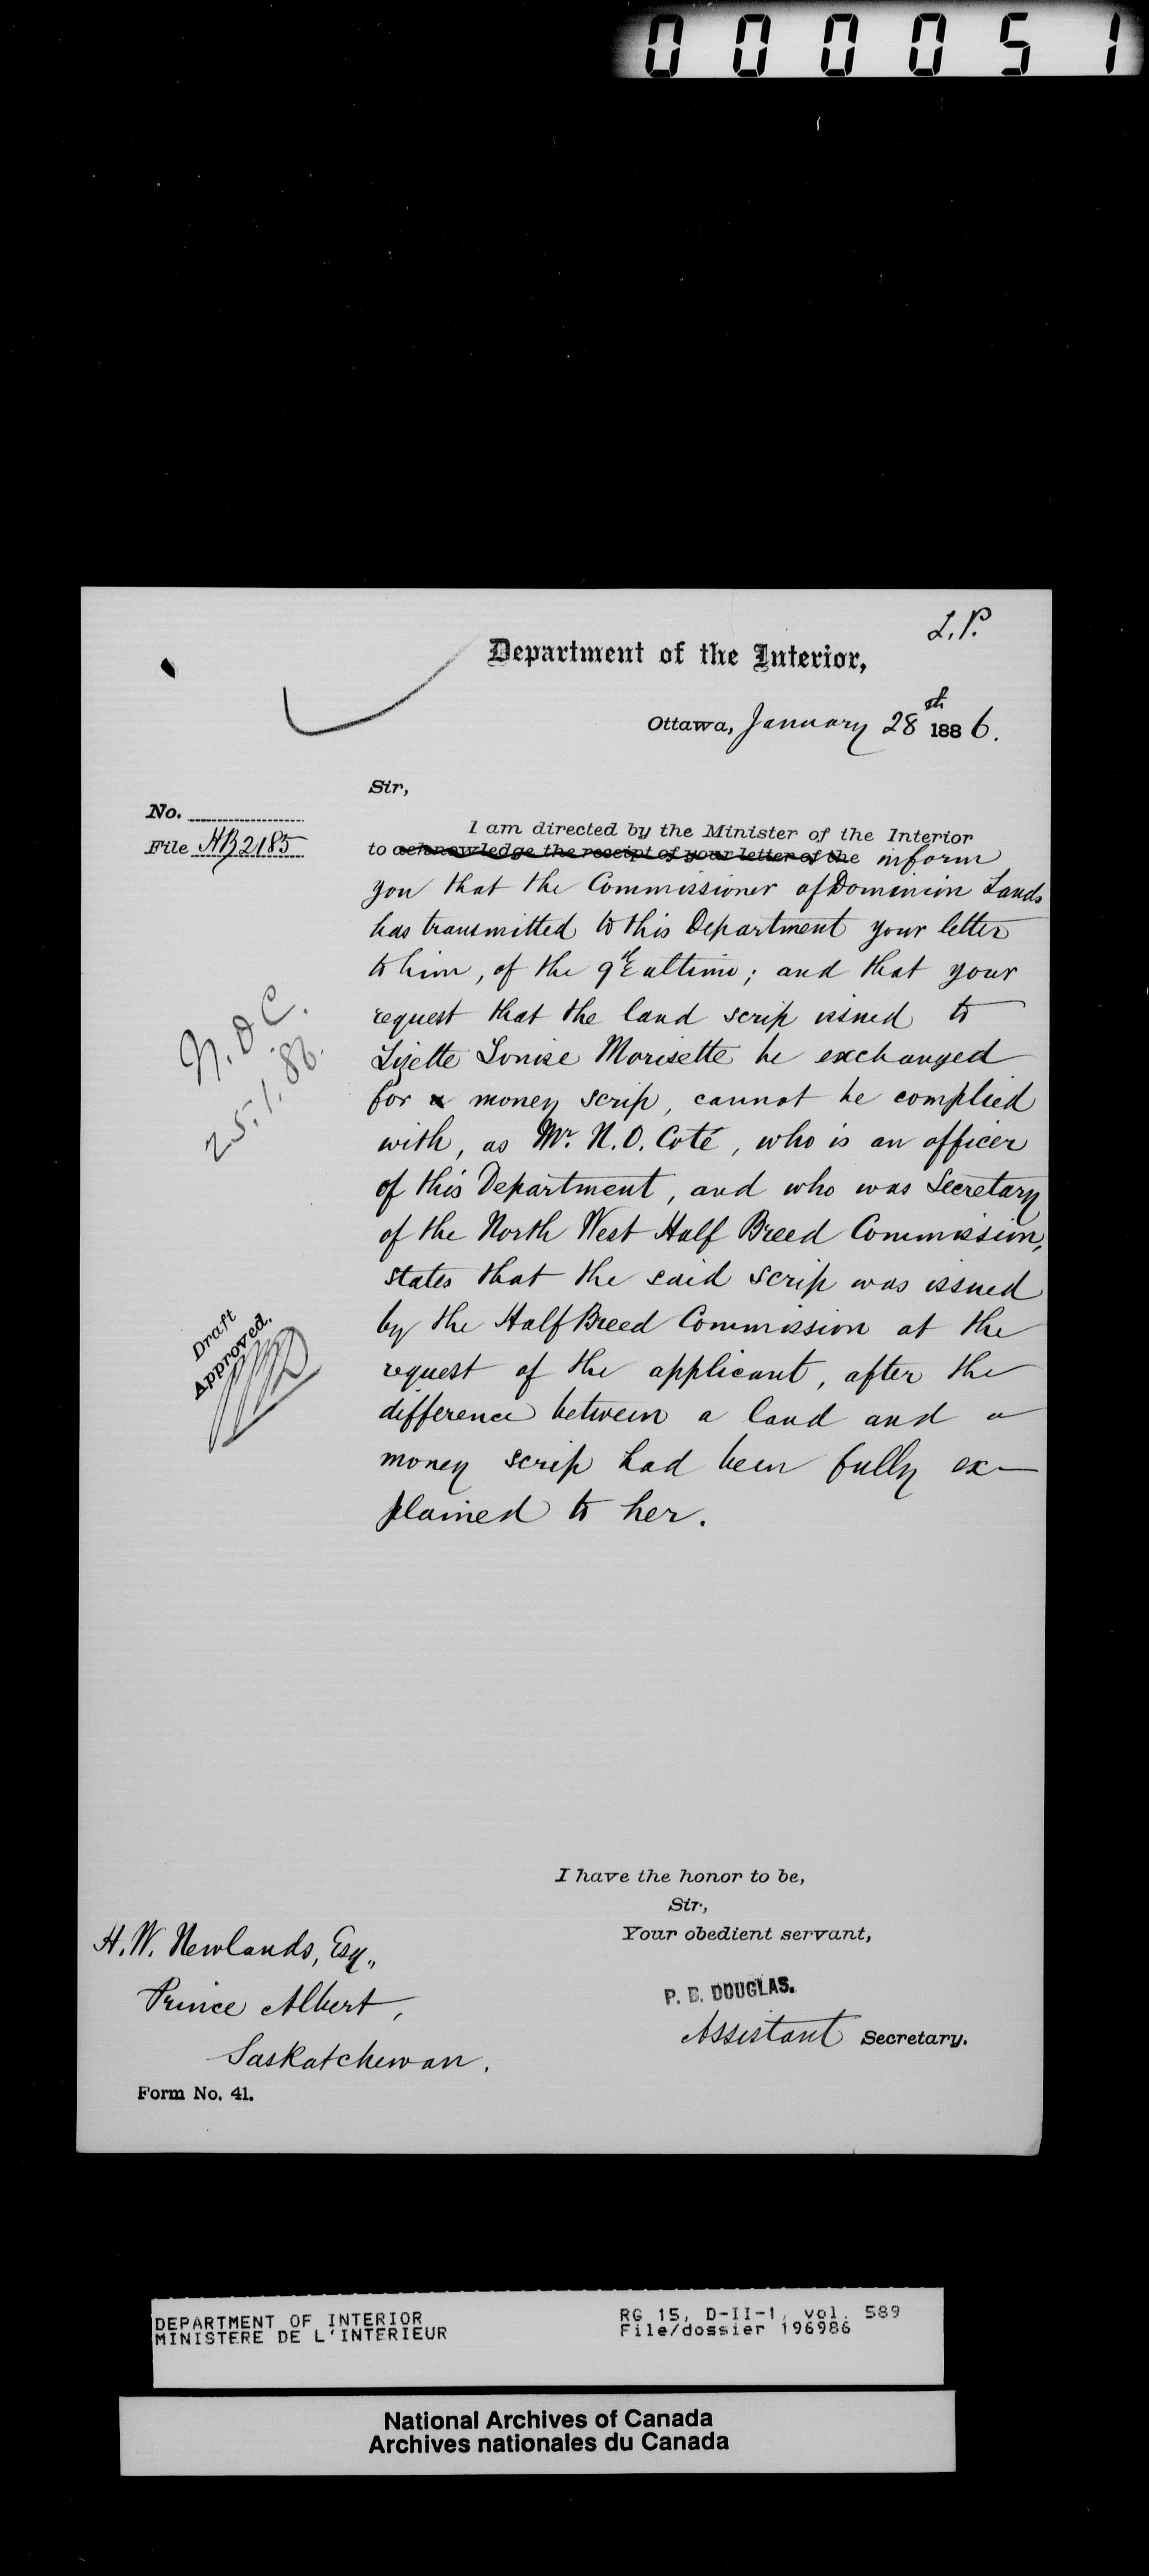 000051
L.P.
Department of the Interior,
Ottawa, January 28th 1886.
Sir,
No.
File HB2185
I am directed by the Minister of the Interior
to acknowledge the receipt of your letter of the inform
you that the Commissioner of Dominion Lands
has transmitted to this Department your letter
to him, of the 9th ultimo; and that your
request that the land scrip issued to
Lizette Louise Morisette be exchanged
for a money scrip, cannot be complied
with, as Mr. N. O. Coté, who is an officer
of this Department, and who was Secretary
of the North West Half Breed Commission,
states that the said scrip was issued
by the Half Breed Commission at the
request of the applicant, after the
difference between a land and a
money scrip had been fully ex-
plained to her.
N.O.C.
25.1.86.
Draft
Approved.
I have the honor to be,
Sir,
Your obedient servant,
P. B. DOUGLAS.
Assistant Secretary.
H. W. Newlands, Esq.,
Prince Albert,
Saskatchewan.
Form No. 41.
DEPARTMENT OF INTERIOR
MINISTERE DE L'INTERIEUR
RG 15, D-II-1, vol. 589
File/dossier 196986
National Archives of Canada
Archives nationales du Canada